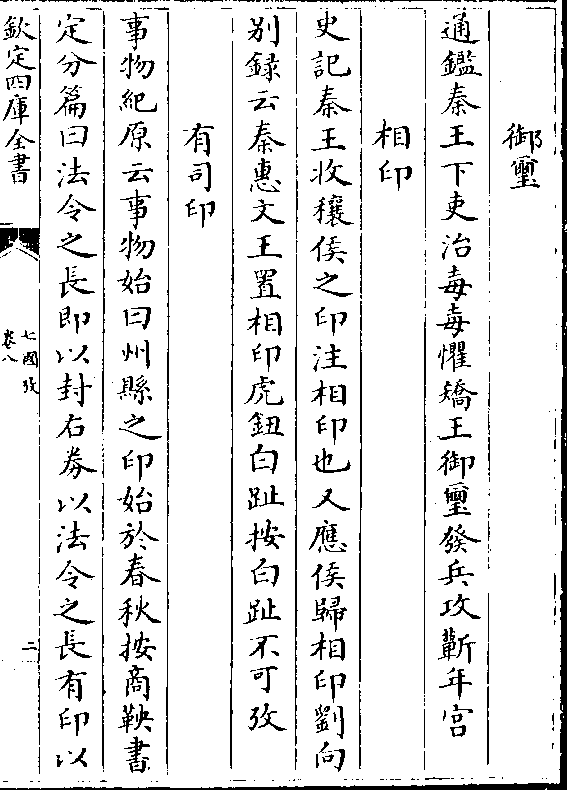 御璽
通鑑秦王下吏治毐毐懼矯王御璽發兵攻蘄年宮
相印
史記秦王收穰侯之印注相印也又應侯歸相印劉向
别録云秦惠文王置相印虎鈕白趾按白趾不可攷
有司印
事物紀原云事物始曰州縣之印始於春秋按商鞅書
定分篇曰法令之長即以封右劵以法令之長有印以
欽定四庫全書
七國攷
卷八
二